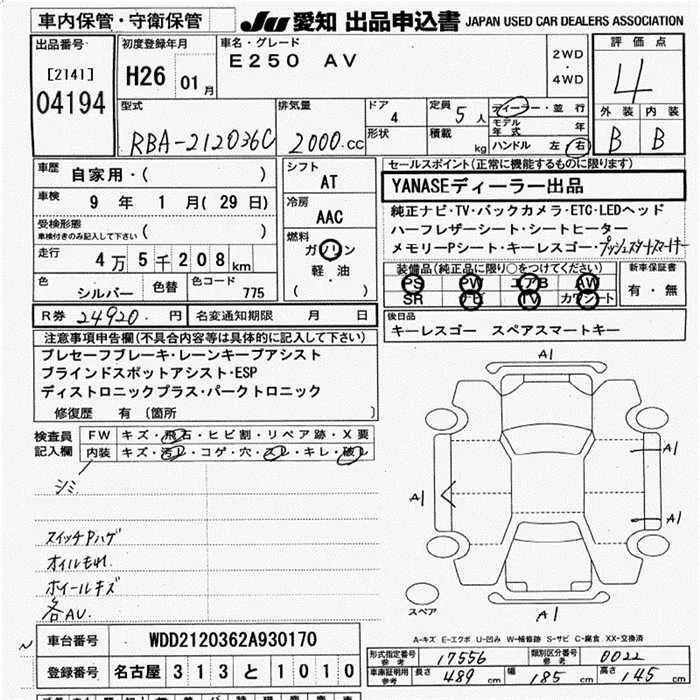 車内保管・守衛保管
JU 愛知 出品申込書 JAPAN USED CAR DEALERS ASSOCIATION
出品番号
[2141]
04194
初度登録年月
H26 01 月
車名・グレード
E250 AV
2WD
・
4WD
評価点
4
外装 内装
B B
型式
RBA-212036C
排気量
2000.CC
ドア
4
形状
定員
5 人
積載
kg
ディーラー・並行
モデル年式 年
ハンドル 左 右
車歴
自家用・( )
車検
9 年 1 月( 29 日)
受検形態
車検付きのみ記入して下さい ( )
走行
4 万 5 千 2 0 8 km
色
シルバー
色替
色コード
775
シフト
AT
冷房
AAC
燃料
ガソリン
軽・油
( )
セールスポイント(正常に機能するものに限ります)
YANASEディーラー出品
純正ナビ・TV・バックカメラ・ETC・LEDヘッド
ハーフレザーシート・シートヒーター
メモリーPシート・キーレスゴー・プッシュスタートスマートキー
装備品(純正品に限り○をつけてください)
PS PW エアB AW
SR ナビ TV カワシート
新車保証書
有・無
R券 24920. 円
名変通知期限 月 日
後日品
キーレスゴー スペアスマートキー
注意事項申告欄(不具合内容等は具体的に記入して下さい)
プレセーフブレーキ・レーンキープアシスト
ブラインドスポットアシスト・ESP
ディストロニックプラス・パークトロニック
修復歴 有 〔箇所 〕
検査員記入欄
FW キズ・飛石・ヒビ割・リペア跡・X要
内装 キズ・汚レ・コゲ・穴・スレ・キレ・破レ
シミ
スイッチPハゲ
オイルもれ
ホイールキズ
各AU.
A1
A1
A1
A1
A1
スペア
A-キズ E-エクボ U-凹み W-補修跡 S-サビ C-腐食 XX-交換済
車台番号 WDD2120362A930170
登録番号 名古屋 3 1 3 と 1 0 1 0
形式指定番号 参考 17556
類別区分番号 参考 0022
車庫証明用 参考 長さ 489 cm 幅 185 cm 高さ 145 cm